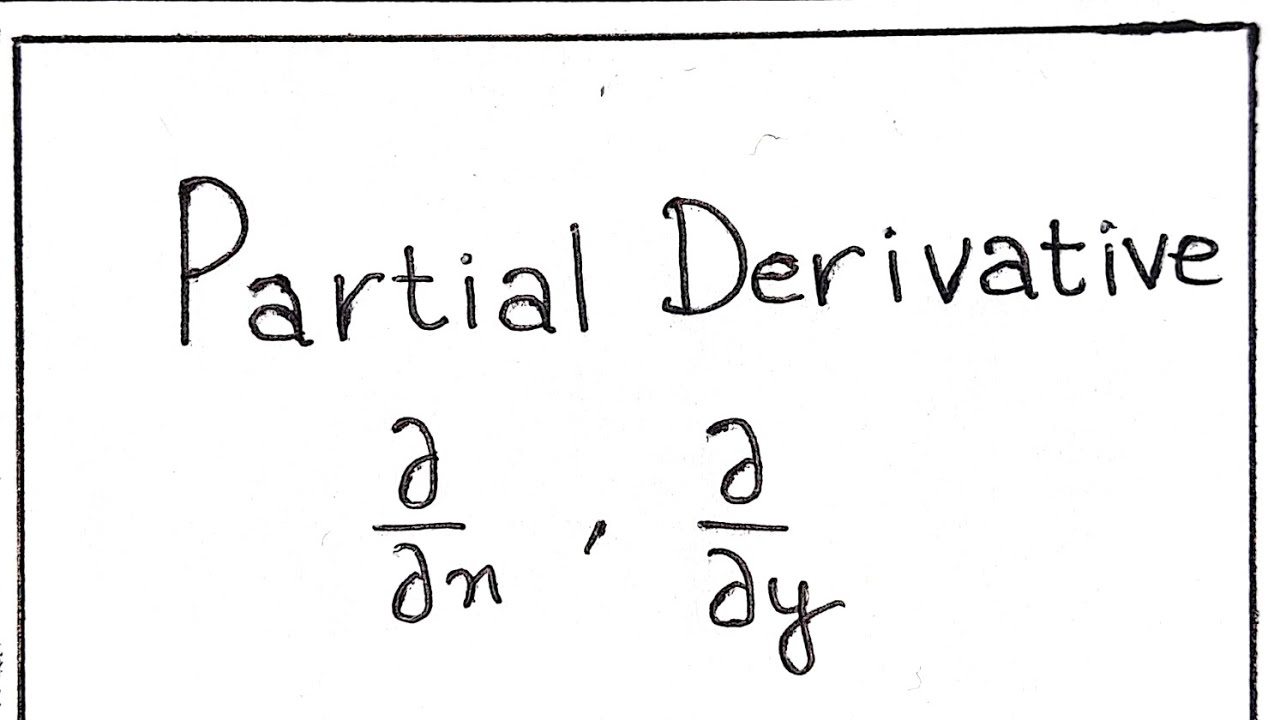 Partial Derivative
∂/∂x , ∂/∂y